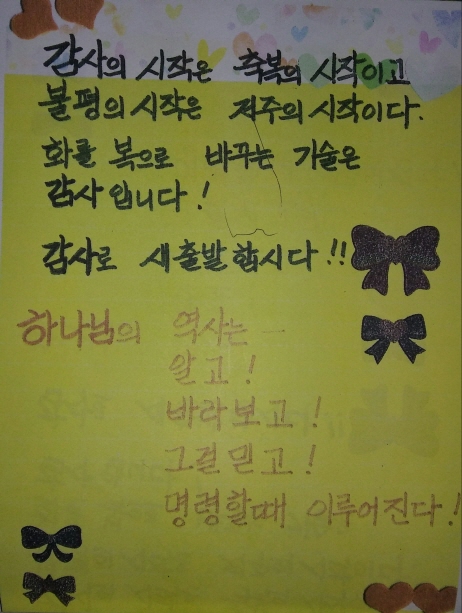 감사의 시작은 축복의 시작이고
불평의 시작은 저주의 시작이다.
화를 복으로 바꾸는 기술은
감사입니다!
감사로 새출발합시다!!
하나님의 역사는 -
알고!
바라보고!
그걸믿고!
명령할때 이루어진다!